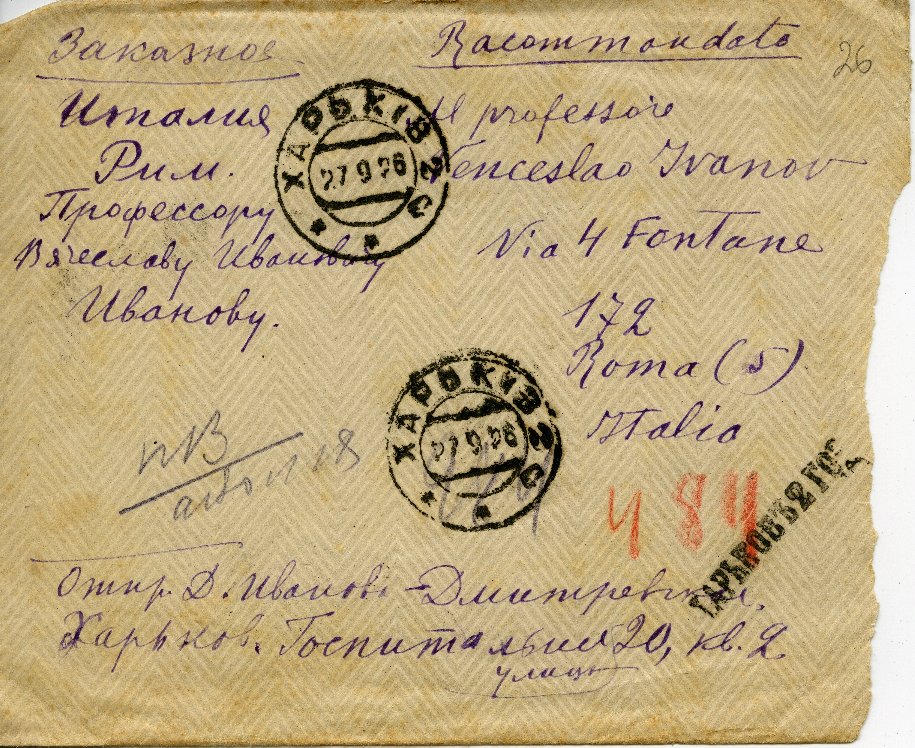 Заказное
Racommandato
26
Италия
Рим.
Профессору
Вячеславу Ивановичу
Иванову.
Il professore
Venceslao Ivanov
Via 4 Fontane
172
Roma (5)
Italia
ХАРЬКІВ 2 С
27 9 26
ХАРЬКІВ 2 С
27 9 26
484
ХАРЬКОВЪ 2 ГОР
Отпр. Д. Иванов-Дмитревская.
Харьков. Госпитальная 20, кв. 2
улица